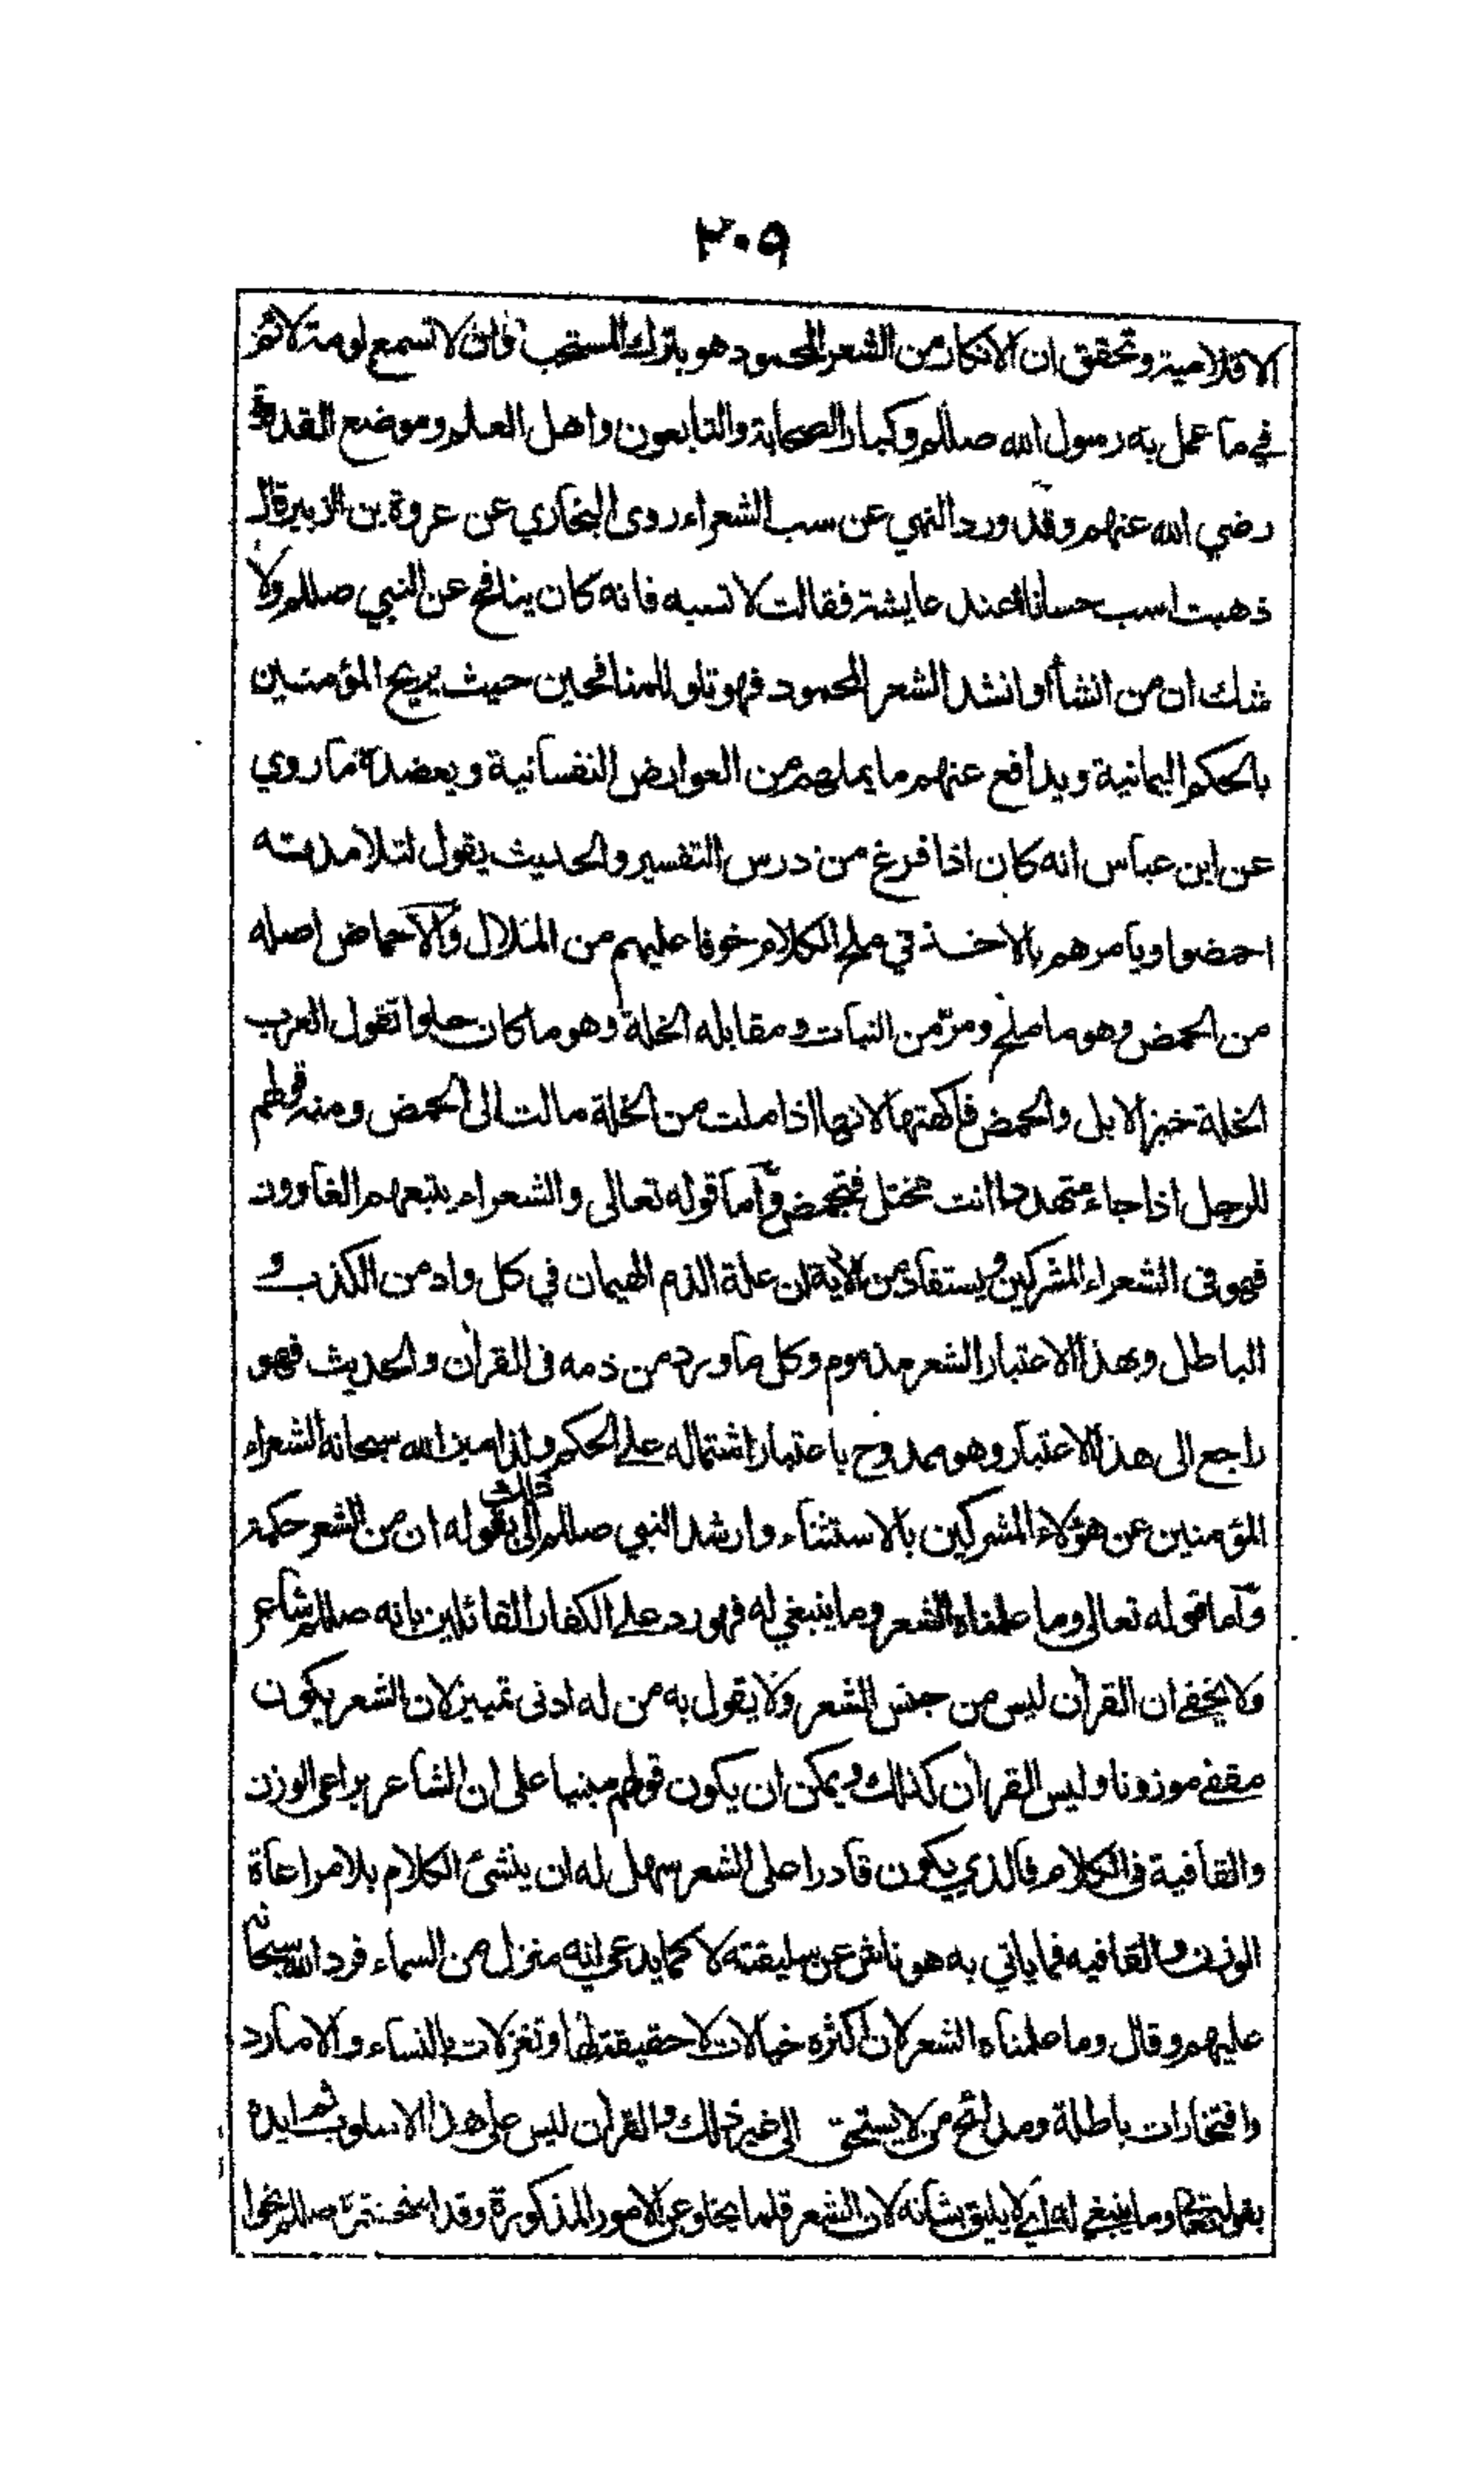 ٣٠٩
الاقلامية وتحقق ان الانكار من الشعر المحمود هو بترك المستحب فان لا تسمع لومة لائم
في ما عمل به رسول الله صللم وكبار الصحابة والتابعون واهل العلم وموضع القدوة
رضي الله عنهم وقد ورد النهي عن سب الشعراء روى البخاري عن عروة بن الزبير قال
ذهبت اسب حسانا عند عايشة فقالت لا تسبه فانه كان ينافح عن النبي صللم ولا
شك ان من انشأ او انشد الشعر المحمود فهو تلو للمنافحين حيث يريح المؤمنين
بالحكم اليمانية ويدافع عنهم ما يملهم من العوارض النفسانية ويعضده ما روي
عن ابن عباس انه كان اذا فرغ من درس التفسير والحديث يقول لتلامذته
احمضوا ويامرهم بالاخذ في ملح الكلام خوفا عليهم من الملال والاحماض اصله
من الحمض وهو ما ملح ومر من النبات ومقابله الخلة وهو ما كان حلوا تقول العرب
الخلة خبز الابل والحمض فاكهتها لانها اذا ملت من الخلة مالت الى الحمض ومنه قولهم
للرجل اذا جاء متهددا انت مختل فتحمض وأما قوله تعالى والشعراء يتبعهم الغاوون
فهو فى الشعراء المشركين ويستفاد من الآية ان علة الذم الهيمان في كل واد من الكذب و
الباطل وبهذا الاعتبار الشعر مذموم وكل ما ورد من ذمه فى القرآن والحديث فهو
راجع الى هذا الاعتبار وهو ممدوح باعتبار اشتماله على الحكم ولذا ميز الله سبحانه الشعراء
المؤمنين عن هؤلاء المشركين بالاستثناء وارشد النبي صللم الى ذلك بقوله ان من الشعر حكمة
وأما قوله تعالى وما علمناه الشعر وما ينبغي له فهو رد على الكفار القائلين بانه صللم شاعر
ولا يخفى ان القرآن ليس من جنس الشعر ولا يقول به من له ادنى تمييز لان الشعر يكون
مقفى موزونا وليس القرآن كذلك ويمكن ان يكون قولهم مبنيا على ان الشاعر يراعى الوزن
والقافية فى الكلام فالذي يكون قادرا على الشعر سهل له ان ينشئ الكلام بلا مراعاة
الوزن والقافيه فما ياتي به هو ناش عن سليقته لا كما يدعي انه منزل من السماء فرد الله سبحانه
عليهم وقال وما علمناه الشعر لان اكثره خيالات لا حقيقة لها وتغزلات بالنساء والامارد
وافتخارات باطلة ومدائح من لا يستحق الى غير ذلك والقرآن ليس على هذا الاسلوب ثم ايده
بقوله وما ينبغي له اي لا يليق بشانه لان الشعر قلما يخلو عن الامور المذكورة وقد صللم نحوا